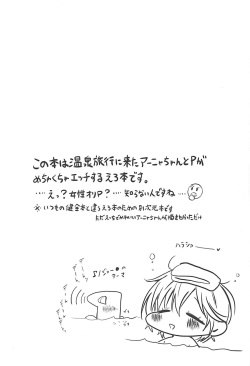 この本は温泉旅行に来たアーニャちゃんとPが
めちゃくちゃエッチするえろ本です。
……えっ?女性オリP?……知らないんですね……
※いつもの健全本と違うえろ本のための別次元本です
ハラショー